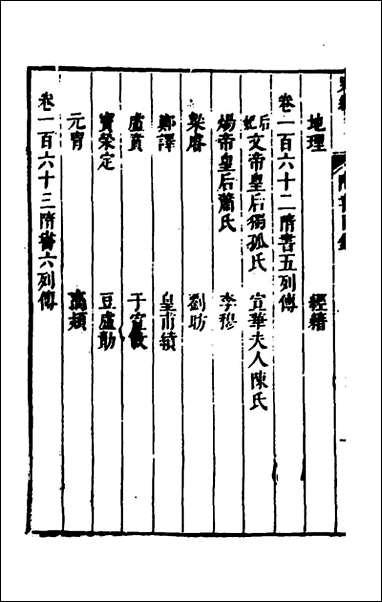 地理　經籍
卷一百六十二隋書五列傳
后妃文帝皇后獨孤氏　宣華夫人陳氏
煬帝皇后蕭氏　李穆
梁睿　劉昉
鄭譯　皇甫績
盧賁　于宣敏
竇榮定　豆盧勣
元冑　高熲
卷一百六十三隋書六列傳